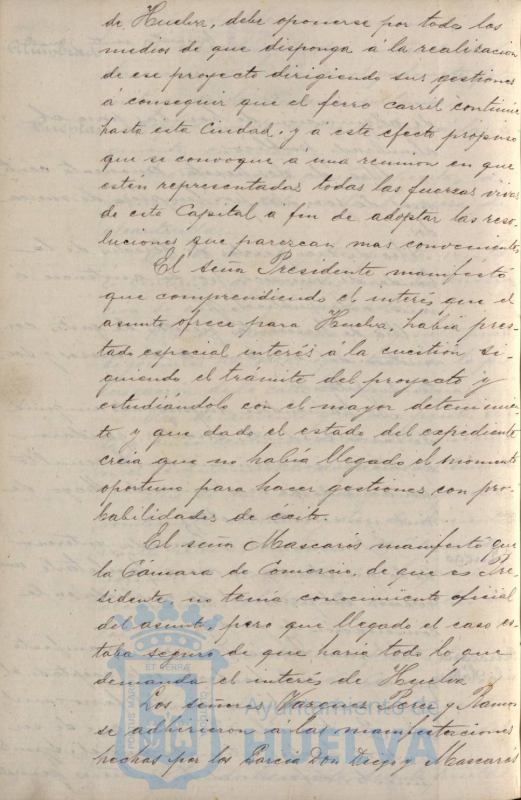 de Huelva, debe oponerse por todos los
medios de que disponga á la realizacion
de ese proyecto dirigiendo sus gestiones
á conseguir que el ferro carril continúe
hasta esta Ciudad, y a este efecto propuso
que se convoque á una reunion en que
estén representadas todas las fuerzas vivas
de esta Capital á fin de adoptar las reso-
luciones que parezcan mas convenientes
El señor Presidente manifestó
que comprendiendo el interés que el
asunto ofrece para Huelva, había pres-
tado especial interés á la cuestión si-
guiendo el trámite del proyecto y
estudiándolo con el mayor detenimien-
to y que dado el estado del expediente
creia que no había llegado el momento
oportuno para hacer gestiones con pro-
babilidades de éxito.
El señor Mascarós manifestó que
la Cámara de Comercio, de que es Pre-
sidente, no tenía conocimiento oficial
del asunto, pero que llegado el caso es-
taba seguro de que haria todo lo que
demanda el interés de Huelva
Los señores Vazquez Perez y Ramos
se adhirieron á las manifestaciones
hechas por los Garcia Don Diego y Mascarós
PORTUS MARIS
ET TERRAE
CUSTODIA
Ayuntamiento de
HUELVA